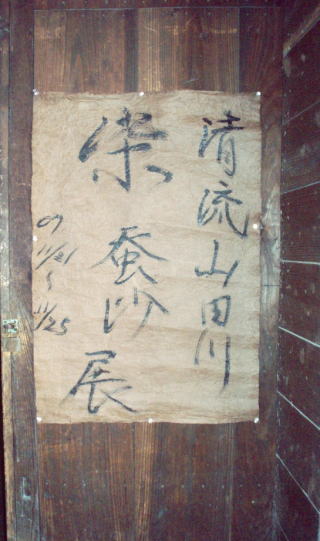 清流山田川
染 蚕沙 展
07
11/21
〜
11/25